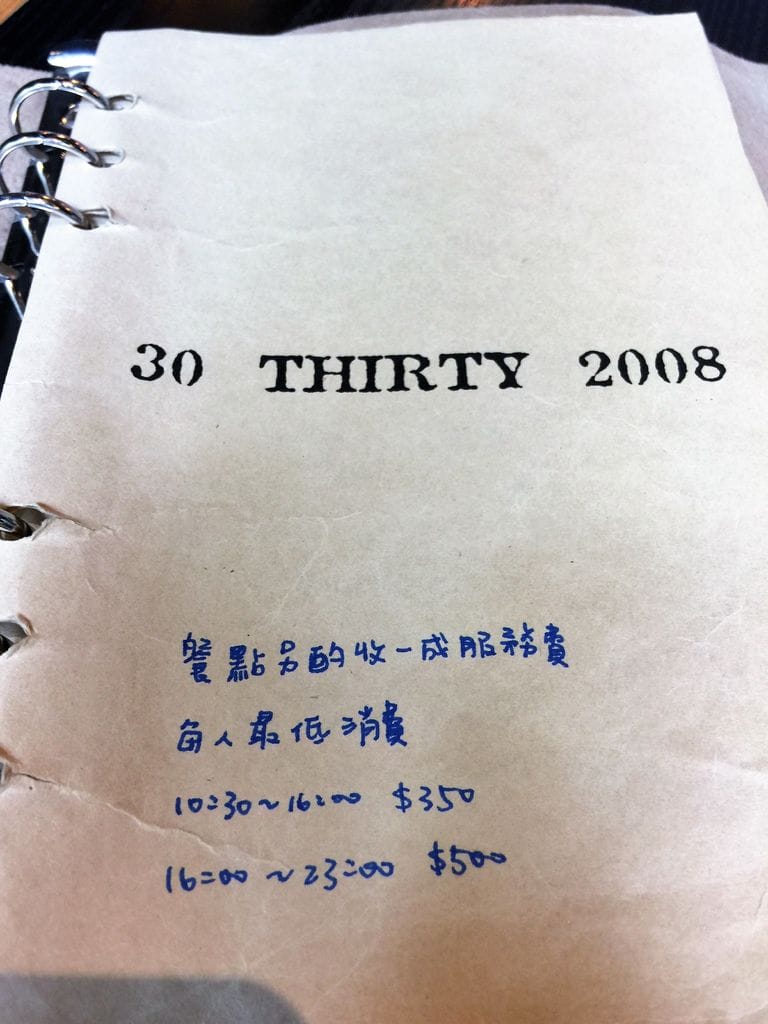 30 THIRTY 2008
餐點另酌收一成服務費
每人最低消費
10:30~16:00 $350
16:00~23:00 $500